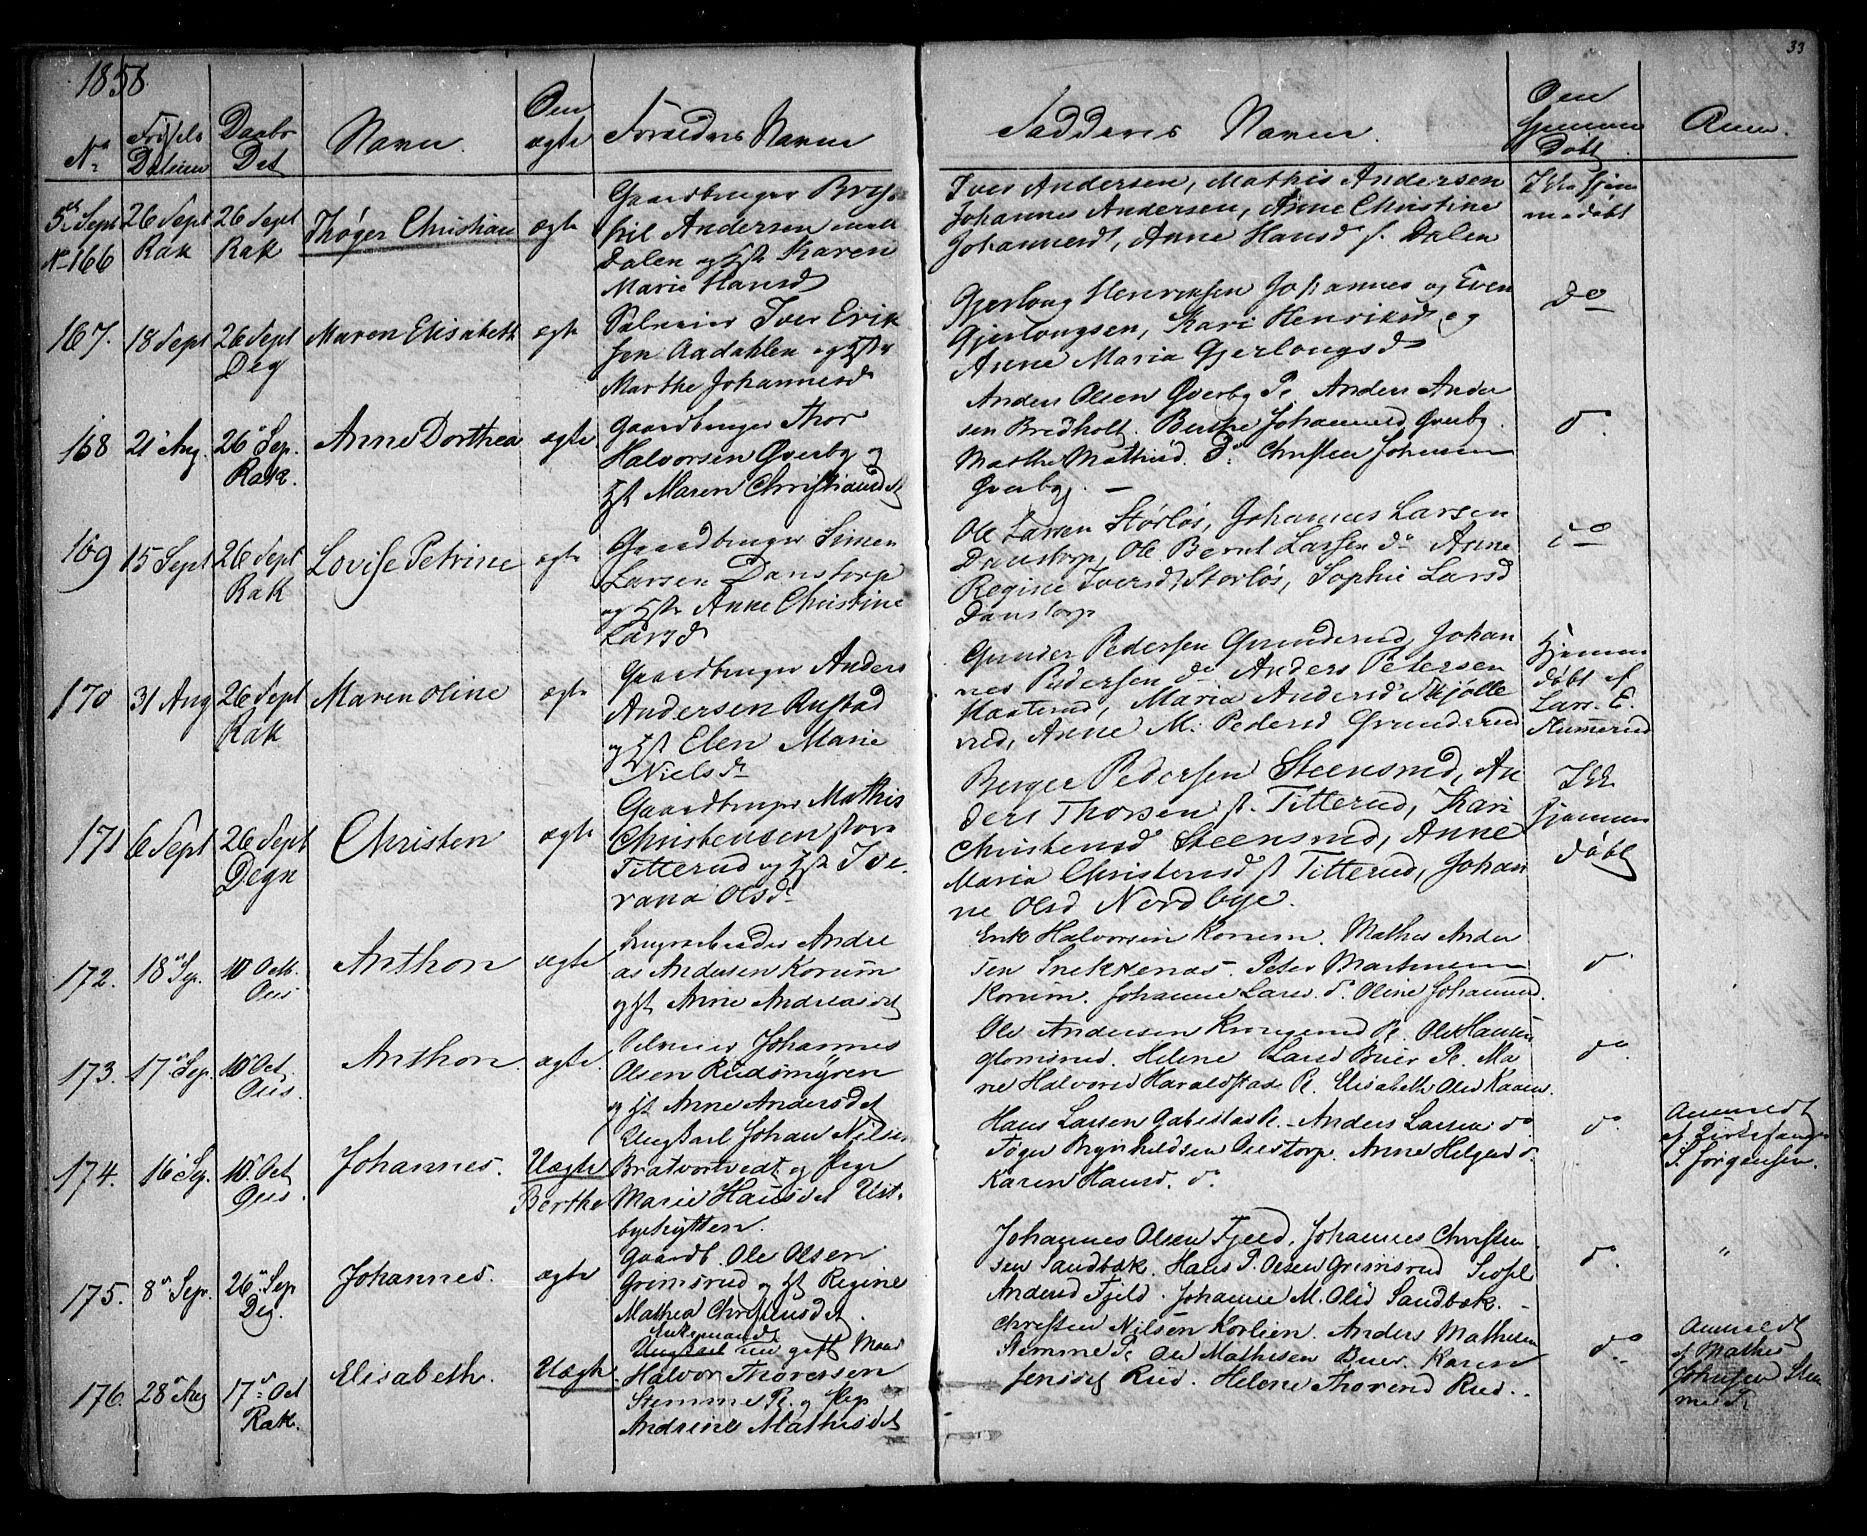 1858
33
No Fødsels Datum Daabs Det Navn Om ægte Forældres Navne
Faddernes Navne Om hjemme Døbt Anm.
5te Sept No 166 26 Sept Rak 26 Sept Rak Thøger Christian ægte
Gaardbruger
Andersen
Dalen og Hst Karen
Marie Hansd
Iver Andersen, Mathis Andersen
Johannes Andersen, Anne Christine
Johannesd, Anne Hansd Dalen
167. 18 Sept 26 Sept Deg Maren Elisabeth ægte
Iver Erik
sen Aadahlen og Hst
Marthe Johannesd
Gjerloug Henriksen Johannes og Even
Gjerlougsen, Kari Henriksd og
Anne Maria Gjerlougsd
do
168 21 Aug. 26 Sep. Rak. Anne Dorthea ægte
Gaardbruger Thor
Halvorsen Øverby og
Hst Maren Christiansdt
Anders Olsen Øverby Anders Ander
sen Bredholt. Berthe Johannesd Øverby.
Marthe Mathisd. Do Christen Johansen
Øverby. —
do.
169 15 Sept 26 Sept Rak Lovise Petrine ægte
Gaardbruger Simen
Larsen Danstorp
og Hst Anne Christine
Larsd
Ole Larsen Størløs, Johannes Larsen
Danstorp, Ole Bernt Larsen do Anne
Regine Iversd Størløs, Sophie Larsd
Danstorp
do
170 31 Aug 26 Sept Rak Maren Oline ægte
Gaardbruger Anders
Andersen Rustad
og Hst Elen Marie
Nielsd
Gunder Pedersen Grunderud, Johan
nes Pedersen do Anders Petersen
Haaterud, Maria Andersd Skjølle
rud, Anne M. Pedersd Grunderud
Hjemme
døbt af
Lars E.
171 6 Sept 26 Sept Degn Christen ægte
Gaardbruger Mathis
Christensen store
Titterud og Hst Ive-
rana Olsd
Berger Pedersen Steensrud, An
ders Thorsen st. Titterud, Kari
Christensd Steensrud, Anne
Maria Christensd st Titterud, Johan
ne Olsd Nordbye.
Ikke
hjemme
døbt
172. 18 Sep. 10 Oct. Øus Anthon ægte
Andre
as Andersen Korum
og Hst Anne Andreasdt
Erik Halvorsen Korum. Mathis Ander
sen Snekkenæs. Peter Martinsen
Korum. Johanne Larsd. do. Oline Johannesd.
do
173. 17 Sep. 10 Oct. Øus. Anthon ægte.
Johannes
Olsen Rudsmyren
og Hst Anne Andersdt
Ole Andersen Ole Hansen
Glomsrud. Helene Larsd Buer Ma
rie Halvorsd Haraldstad. Elisabeth Olsd Kaasen.
do.
174. 16 Sep. 10 Oct Øus. Johannes. Uægte
Ungkarl Johan Nilsen
Bratvortvedt og Pige
Berthe Marie Hansdt Ust-
byehytten.
Hans Larsen Gabestad. Anders Larsen do.
Tøger Brynhildsen Ouestorp. Anne Helgesd do.
Karen Hansd. do.
do
Anmeldt
af Kirkesanger
S. Jørgensen.
175. 8 Sep. 26 Sep Deg. Johannes. ægte
Gaardb. Ole Olsen
Grimsrud og Hst Regine
Mathea Christensdt.
Johannes Olsen Fjeld, Johannes Christen
sen Sandbæk. Hans P. Olsen Grimsrud
Andersd Fjeld. Johanne M. Olsd Sandbæk.
do.
"
176. 28 Aug 17 Oct Rak. Elisabeth. Uægte
Enkemand
Ungkarl nu gift Mand
Halvor Thoresen
Stemme og Pige
Andrine Mathisdt
Christen Nilsen Korlien. Anders Mathisen
Stemme Ole Mathisen Buer. Karen
Jensdt Rud. Helene Thoresd Rud.
do.
Anmeldt
af Mathis
Johnsen Stem
me